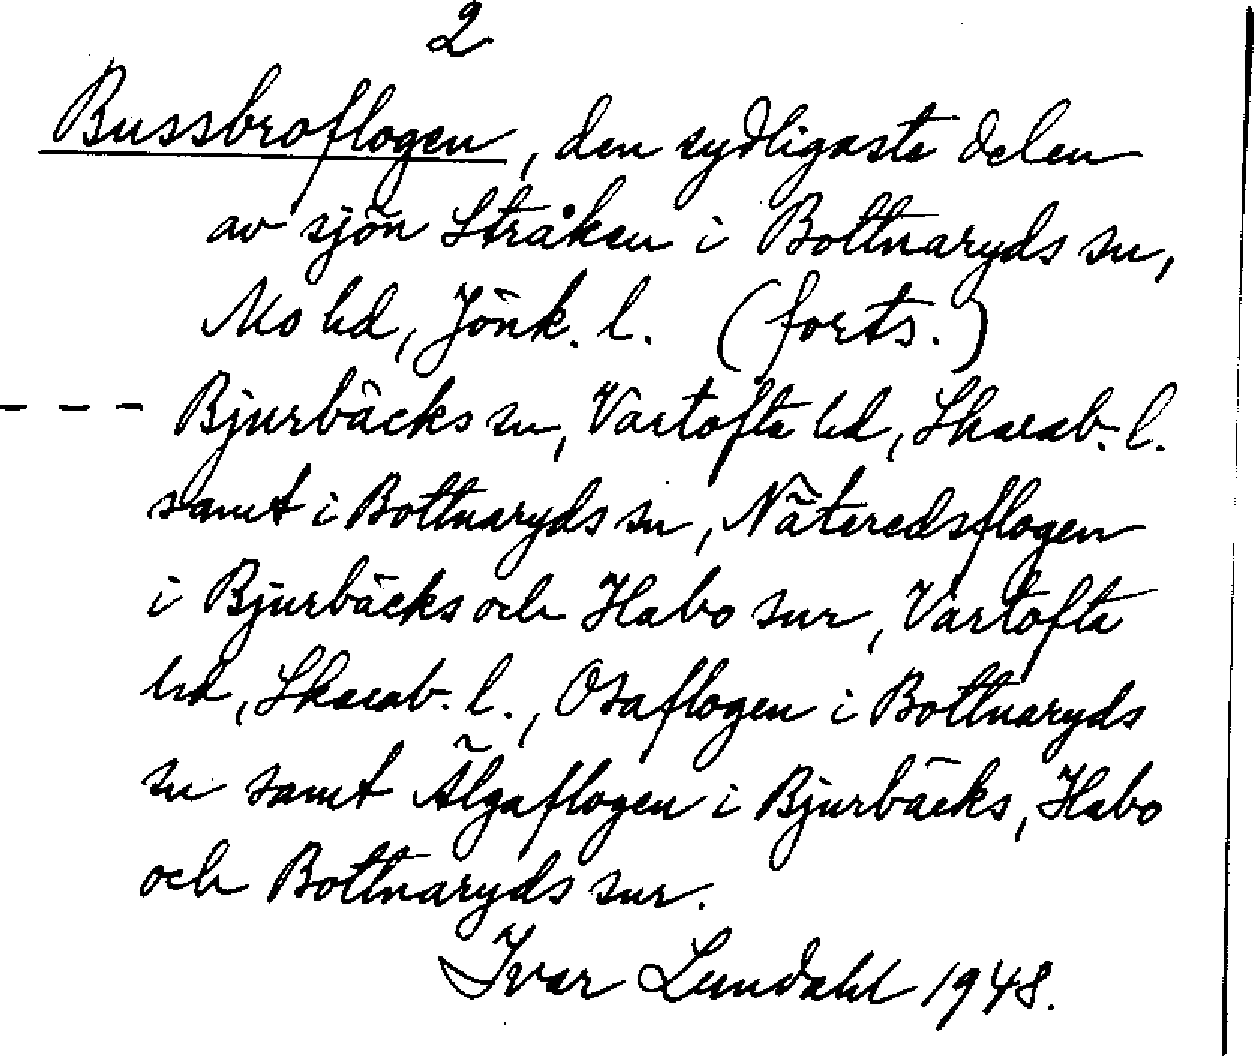 2
Bussbroflogen, den sydligaste delen
av sjön Stråken i Bottnaryds sn,
Mo hd, Jönk. l. (forts.)
--- Bjurbäcks sn, Vartofta hd, Skarab. l.
samt i Bottnaryds sn, Näteredsflogen
i Bjurbäcks och Habo snr, Vartofta
hd, Skarab. l., Osaflogen i Bottnaryds
sn samt Älgaflogen i Bjurbäcks, Habo
och Bottnaryds snr.
Ivar Lundahl 1948.